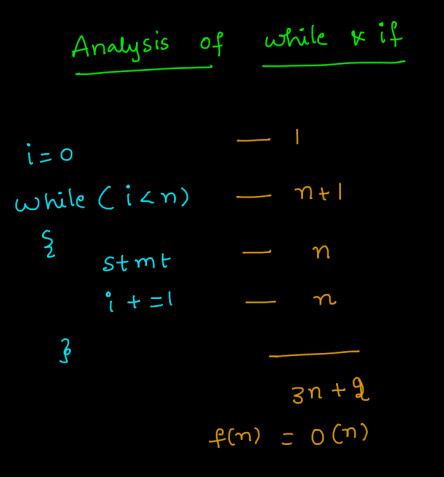 Analysis of while & if
i=0 — 1
while (i<n) — n+1
{
stmt — n
i+=1 — n
}
3n+2
f(n) = O(n)